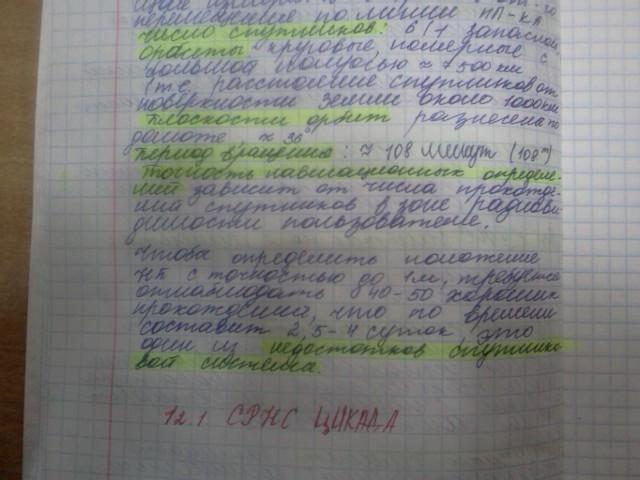 перемещение по линии НП-КА
число спутников: 6/1 запасной
орбиты круговые, полярные с
большой полуосью ≈ 7500 км
(т.е. расстояние спутников от
поверхности Земли около 1000 км
плоскости орбит разнесены по
долготе ≈ 36°
период вращения: ≈ 108 минут (108ᵐ)
Точность навигационных определе-
ний зависит от числа прохожде-
ния спутников в зоне радиови-
димости пользователе.
Чтоба определить положение
НП с точностью до 1м, требуется
отнаблюдать 40-50 хороших
прохождений, что по времени
составит 2,5-4 суток, это
один из недостатков спутнико-
вой системы.
12.1 СРНС ЦИКАДА